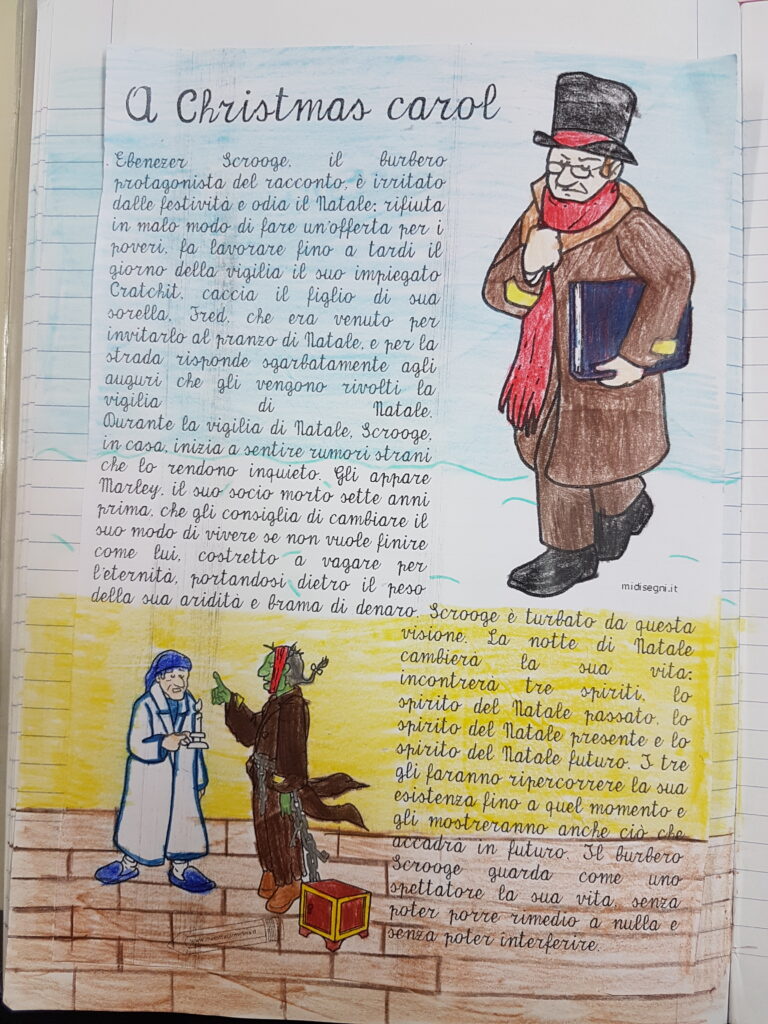 A Christmas carol
Ebenezer Scrooge, il burbero
protagonista del racconto, è irritato
dalle festività e odia il Natale: rifiuta
in malo modo di fare un'offerta per i
poveri, fa lavorare fino a tardi il
giorno della vigilia il suo impiegato
Cratchit, caccia il figlio di sua
sorella, Fred, che era venuto per
invitarlo al pranzo di Natale, e per la
strada risponde sgarbatamente agli
auguri che gli vengono rivolti la
vigilia di Natale.
Durante la vigilia di Natale, Scrooge,
in casa, inizia a sentire rumori strani
che lo rendono inquieto. Gli appare
Marley, il suo socio morto sette anni
prima, che gli consiglia di cambiare il
suo modo di vivere se non vuole finire
come lui, costretto a vagare per
l'eternità, portandosi dietro il peso
della sua aridità e brama di denaro. Scrooge è turbato da questa
visione. La notte di Natale
cambierà la sua vita:
incontrerà tre spiriti, lo
spirito del Natale passato, lo
spirito del Natale presente e lo
spirito del Natale futuro. I tre
gli faranno ripercorrere la sua
esistenza fino a quel momento e
gli mostreranno anche ciò che
accadrà in futuro. Il burbero
Scrooge guarda come uno
spettatore la sua vita, senza
poter porre rimedio a nulla e
senza poter interferire.
midisegni.it